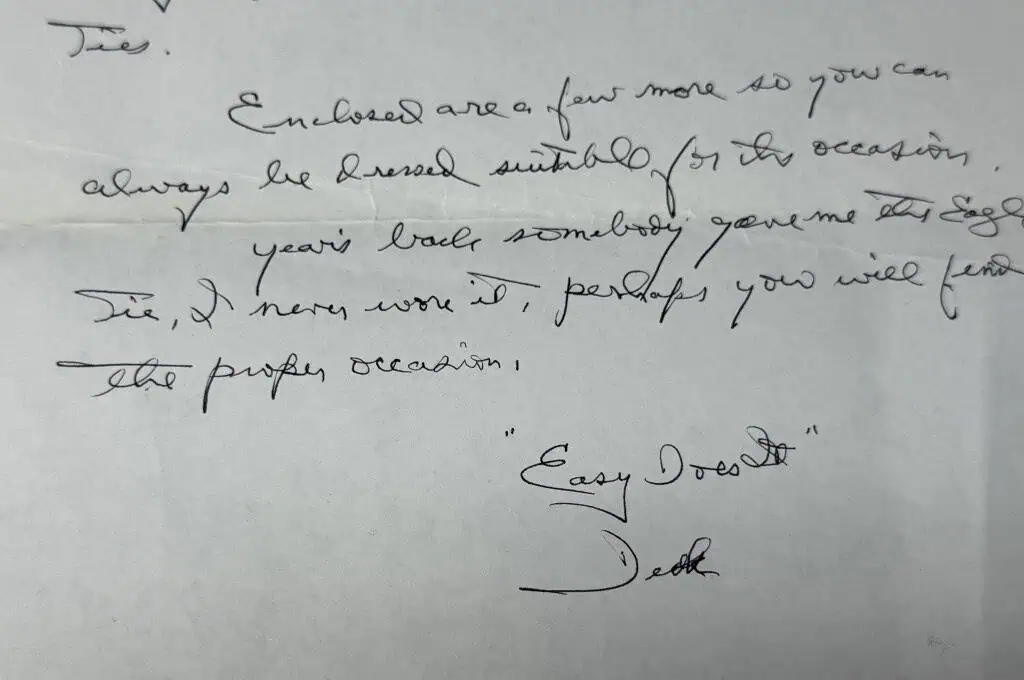 Ties.
Enclosed are a few more so you can
always be dressed suitable for the occasion.
years back somebody gave me the Eagle
Tie, I never wore it, perhaps you will find
the proper occasion.
"Easy Does It"